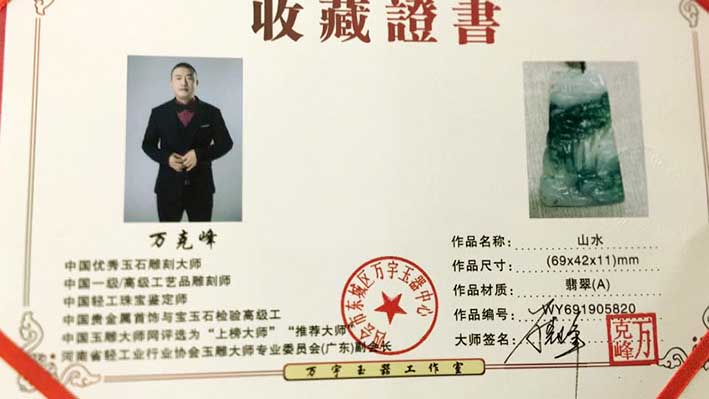 收藏證書
万克峰
中国优秀玉石雕刻大师
中国一级/高级工艺品雕刻师
中国轻工珠宝鉴定师
中国贵金属首饰与宝玉石检验高级工
中国玉雕大师网评选为“上榜大师”“推荐大师”
河南省轻工业行业协会玉雕大师专业委员会(广东)副会长
作品名称: 山水
作品尺寸: (69x42x11)mm
作品材质: 翡翠(A)
作品编号: WY691905820
大师签名:
万克峰
四会市东城区万宇玉器中心
万宇玉器工作室